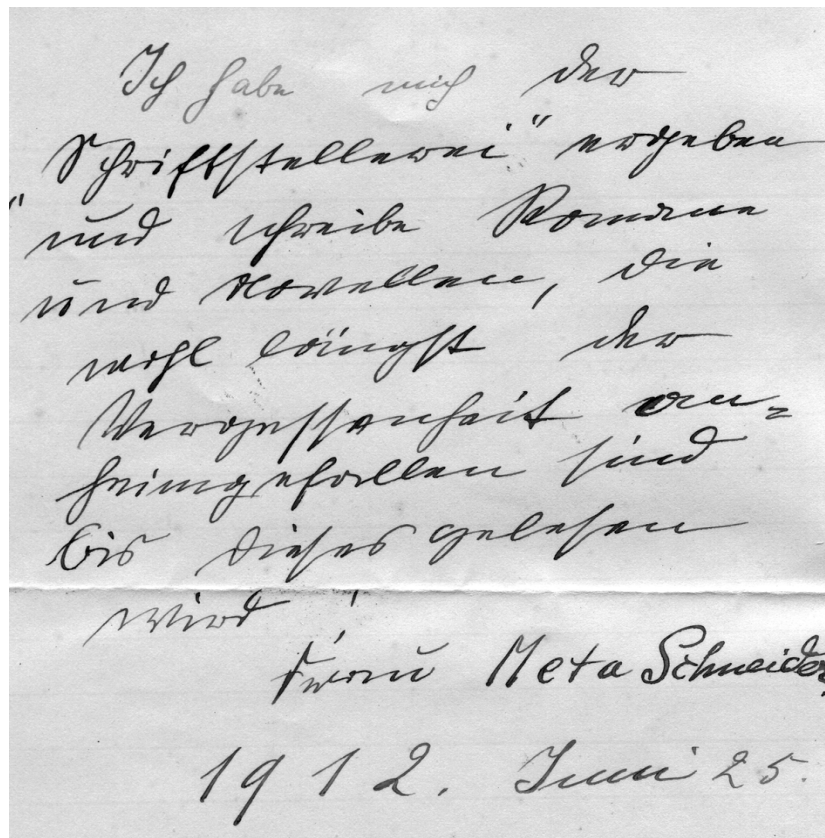 Ich habe mich der
Schriftstellerei" ergeben
"und schreibe Romane
und Novellen, die
wohl längst der
Vergessenheit an=
heimgefallen sind
bis dieses gelesen
wird!
Frau Meta Schneider,
1912. Juni 25.